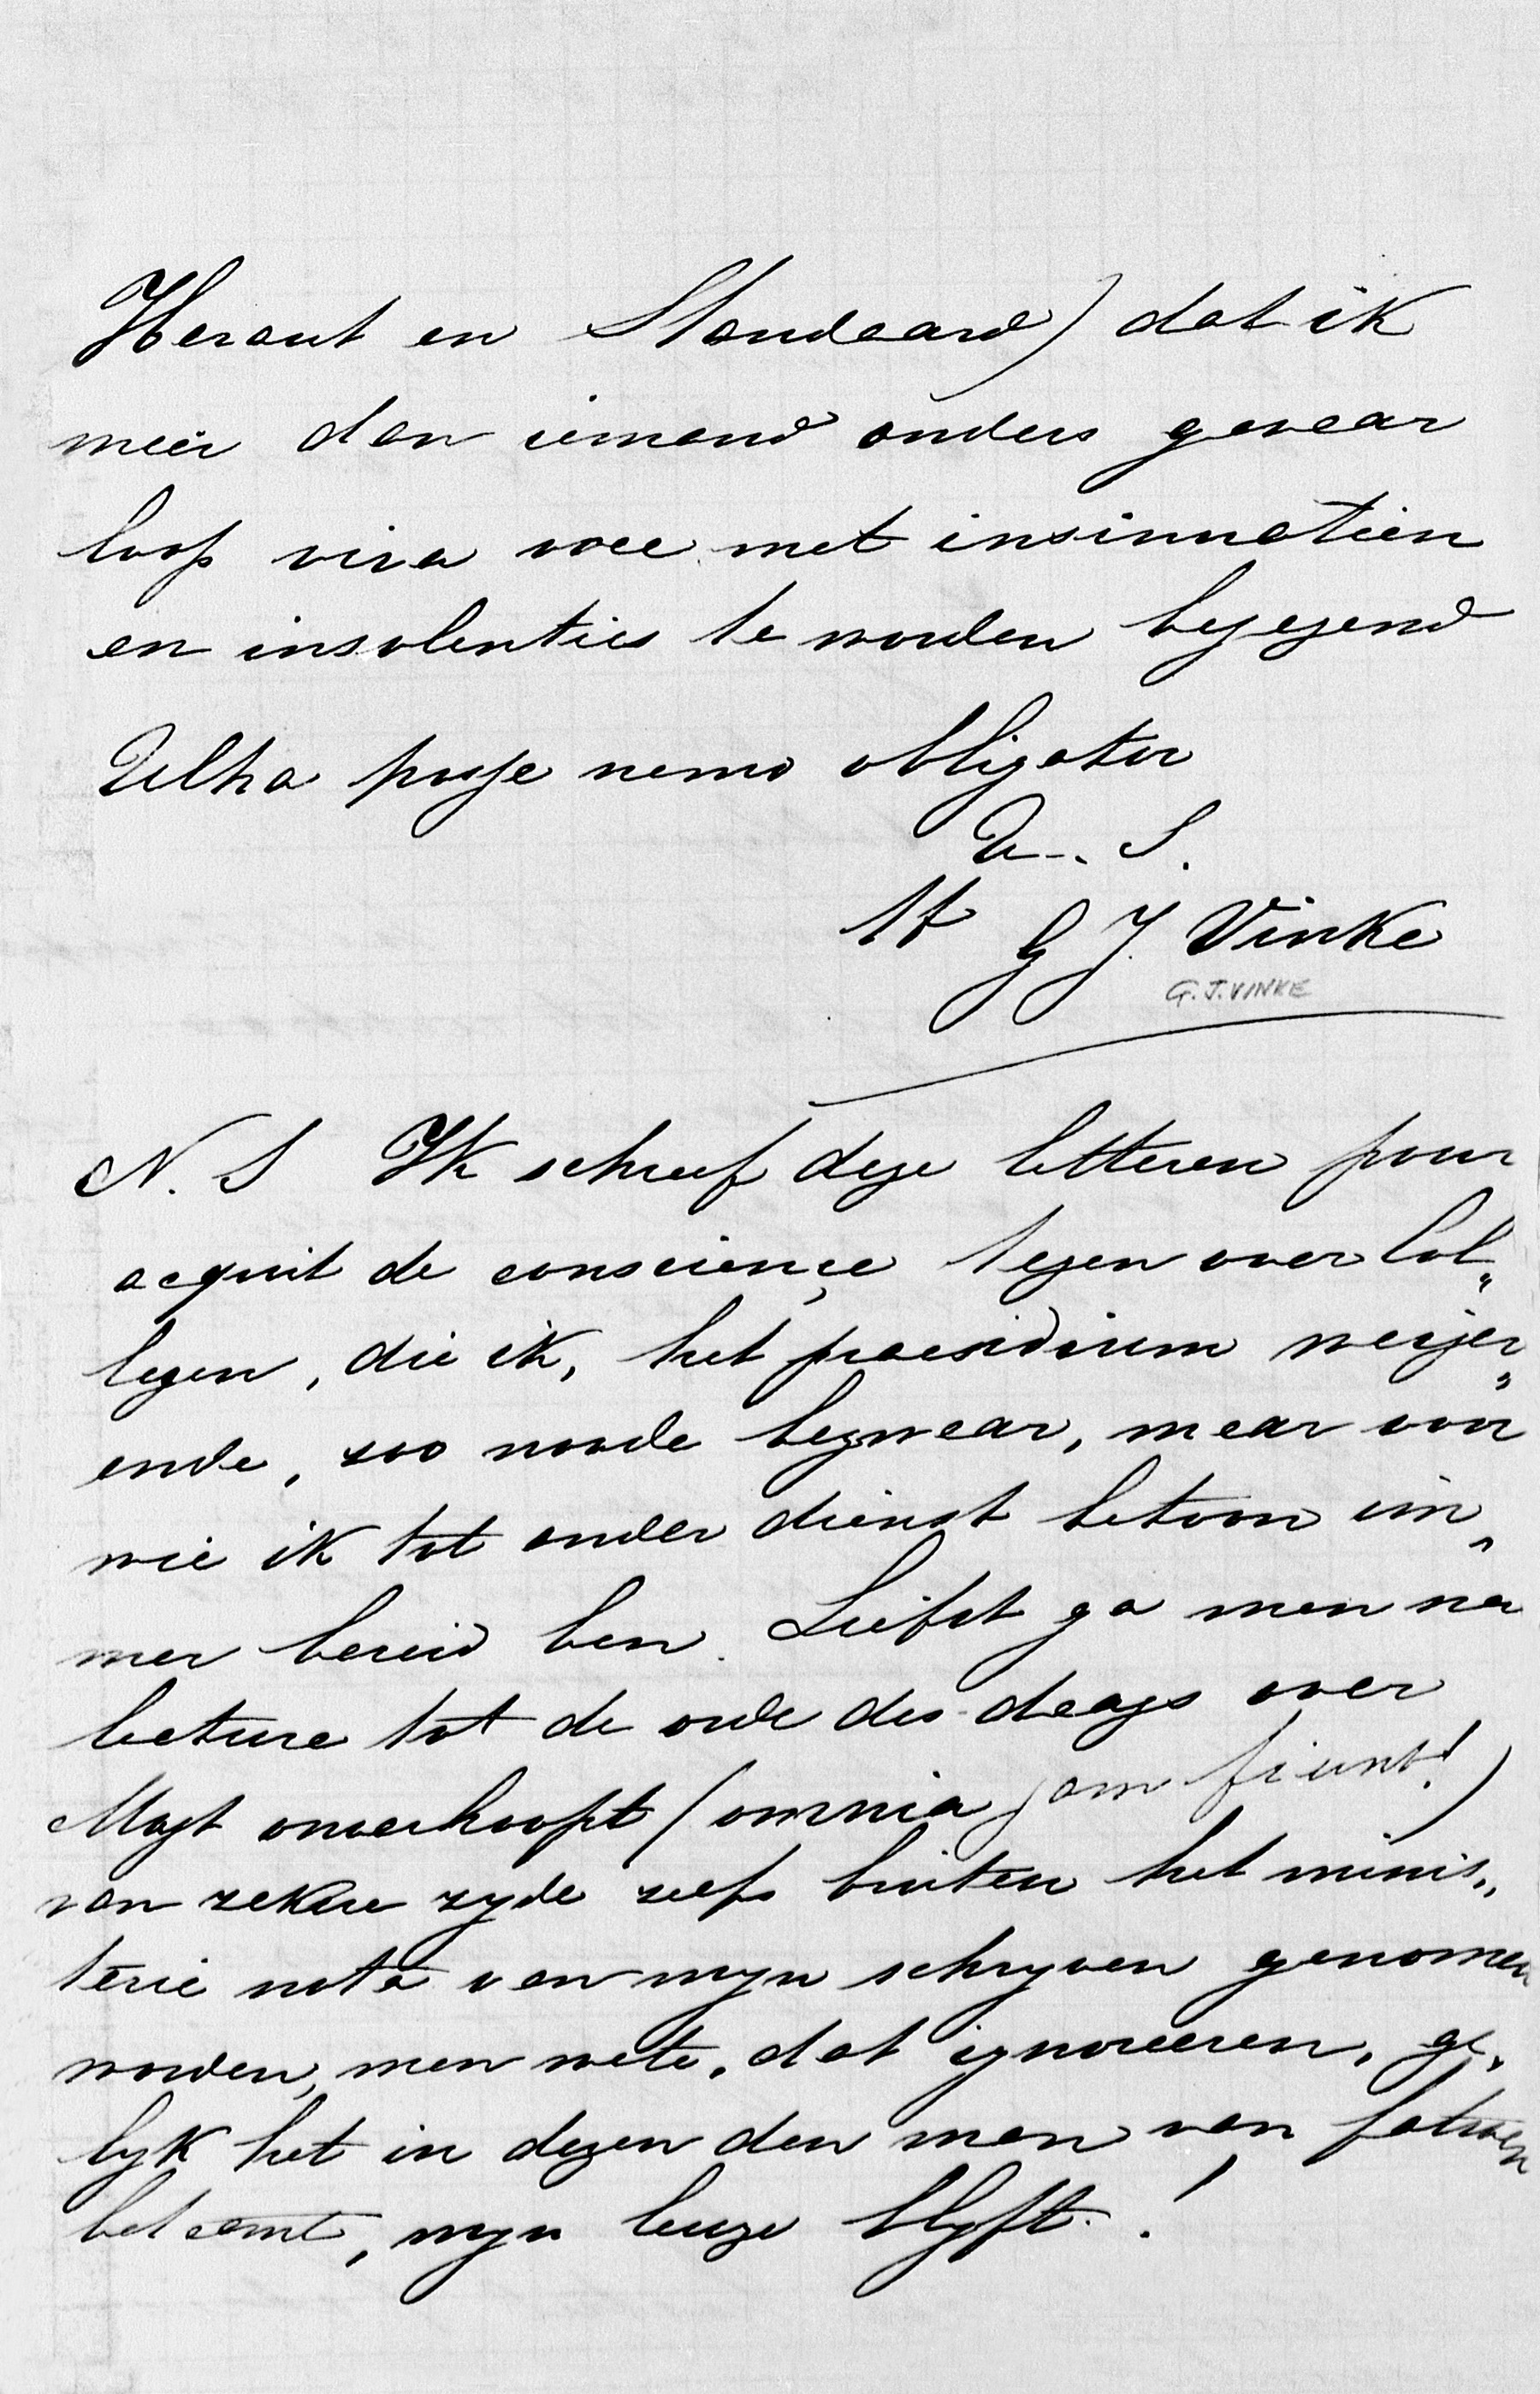 Heraut en Standaard) dat ik
meer dan iemand anders gevaar
loop viva voce met insinuatien
en insolenties te worden bejegend
Ultra posse nemo obligatur
G J. Vinke
G.J. VINKE
N. S Ik schreef deze letteren pour
acquit de conscience tegen over Col„
legen, die ik, het praesidium weiger„
ende, zoo noode bezwaar, maar voor
wie ik tot ander dienst betoon im„
mer bereid ben. Liefst ga men na
lecture tot de orde des daags over
Mogt onverhoopt (omnia jam fiunt!)
van zekere zyde zelfs buiten het minis„
terie nota van myn schryven genomen
worden, men wete, dat ignoreeren, ge„
lyk het in dezen den man van fatsoen
betaamt, myn leuze blyft.!